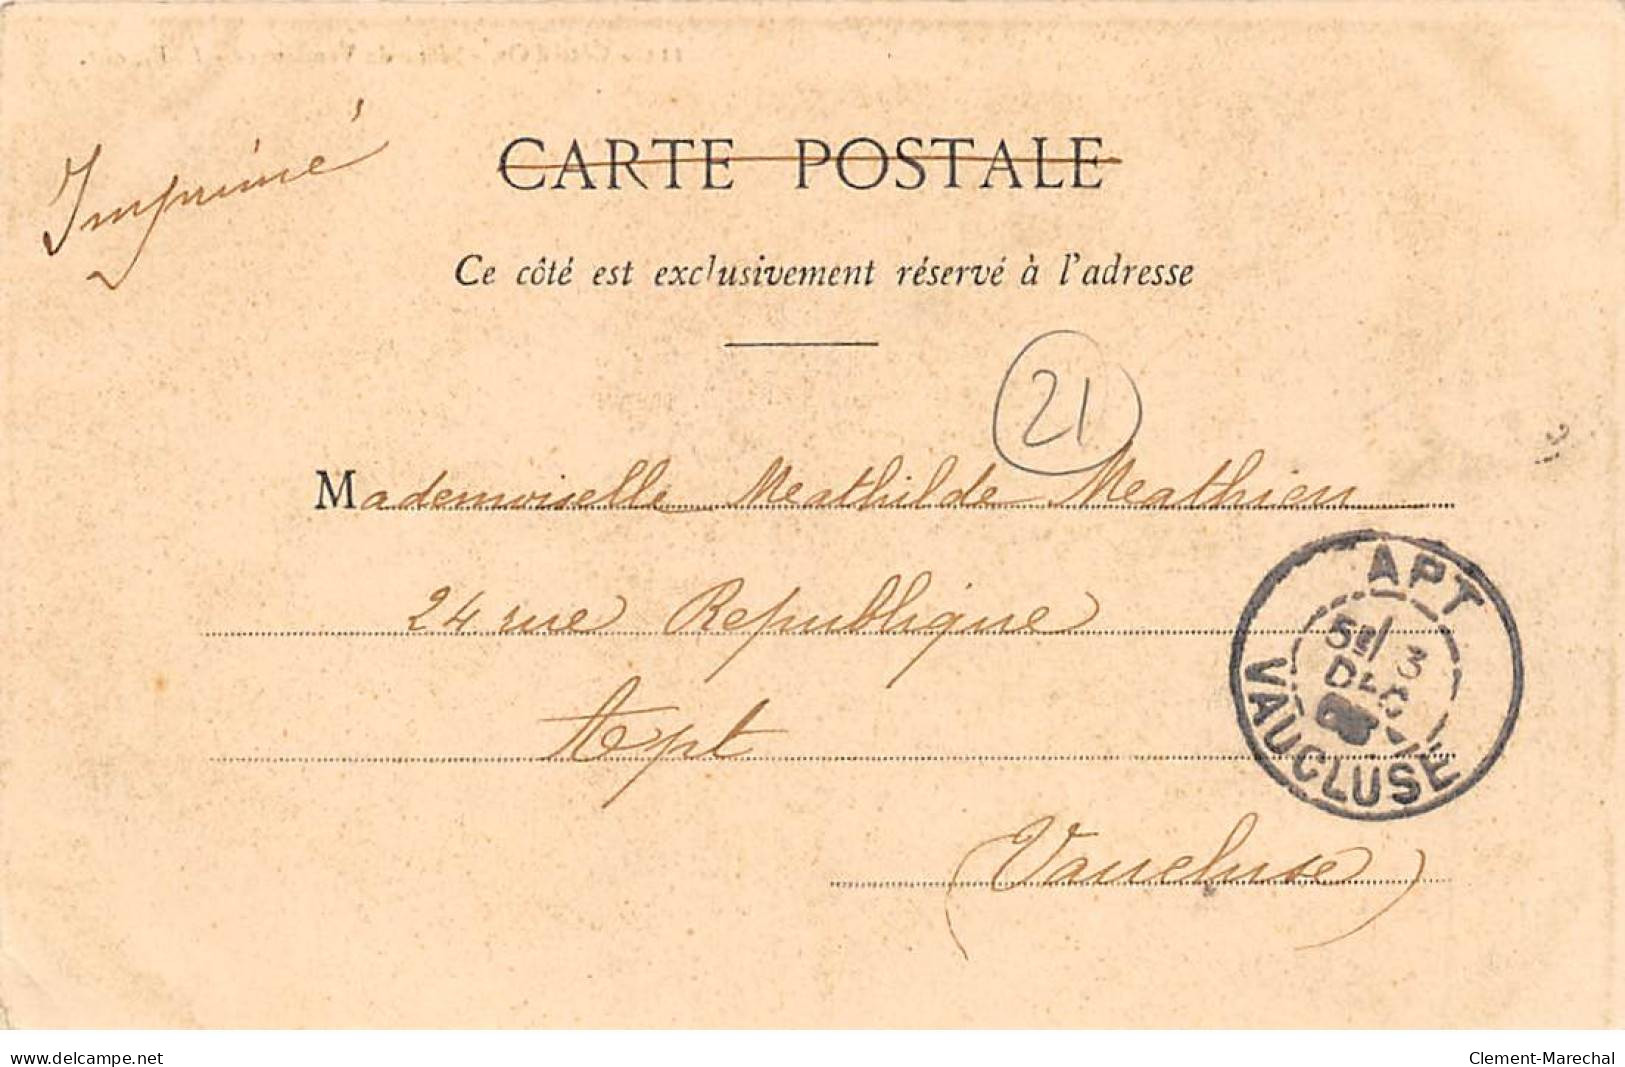 Imprimé
CARTE POSTALE
Ce côté est exclusivement réservé à l'adresse
21
Mademoiselle Mathilde Mathieu
24 rue Republique
Apt
(Vaucluse)
APT
5E/ 3
DEC
VAUCLUSE
www.delcampe.net
Clement-Marechal